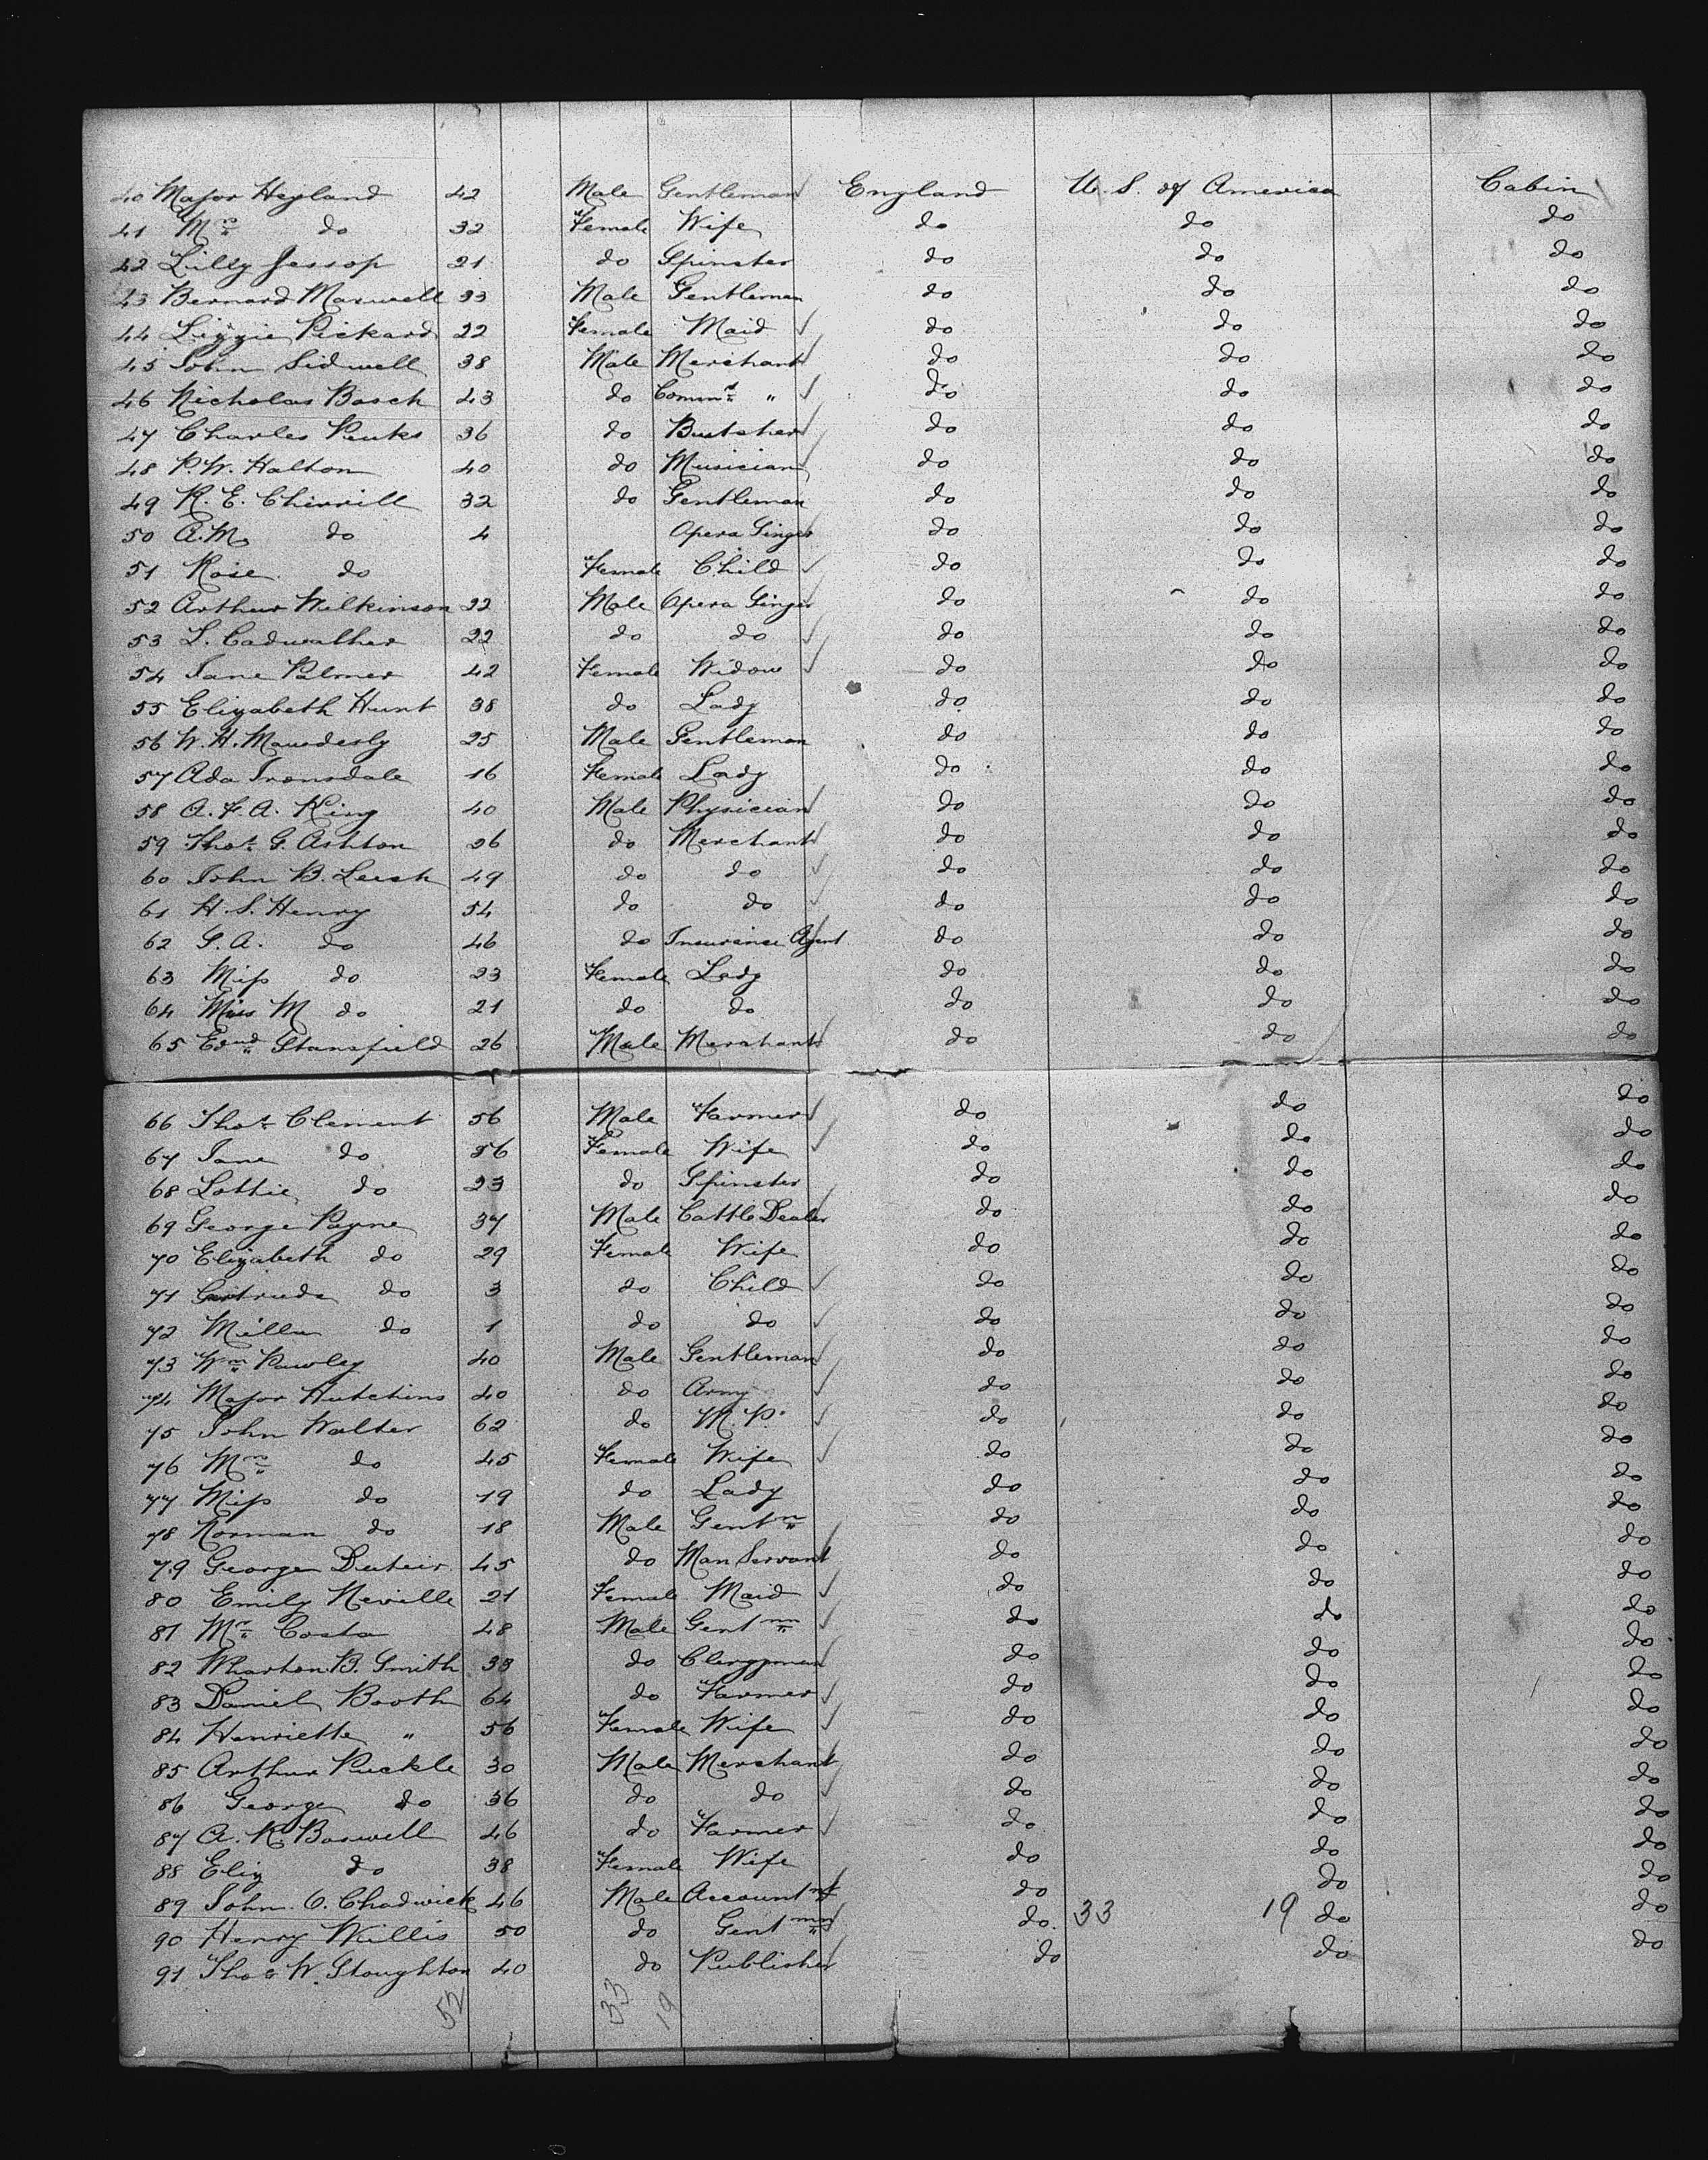 40 Major Heyland 42 Male Gentleman England U. S. of America Cabin
41 Mrs do 32 Female Wife do do do
42 Lilly Jessop 21 do Spinster do do do
43 Bernard Maxwell 33 Male Gentleman do do do
44 Lizzie Pickard 22 Female Maid do do do
45 John Sidwell 38 Male Merchant do do do
46 Nicholas Bosch 43 do " do do do
47 Charles 36 do Butcher do do do
48 P. W. Halton 40 do Musician do do do
49 R. E. Chirvill 32 do Gentleman do do do
50 A. M. do 4 Opera Singer do do do
51 Rose do Female Child do do do
52 Arthur Wilkinson 22 Male Opera Singer do do do
53 L. Cadwalher 22 do do do do do
54 Jane Palmer 42 Female Widow do do do
55 Elizabeth Hunt 38 do Lady do do do
56 W. H. 25 Male Gentleman do do do
57 Ada Ironsdale 16 Female Lady do do do
58 A. F. A. King 40 Male Physician do do do
59 Thos G. Ashton 26 do Merchant do do do
60 John B. Leech 49 do do do do do
61 H. S. Henry 54 do do do do do
62 G. A. do 46 do Insurance Agent do do do
63 Miss do 23 Female Lady do do do
64 Miss M do 21 do do do do do
65 Edmd Stansfield 26 Male Merchant do do do
66 Thos Clement 56 Male Farmer do do do
67 Jane do 56 Female Wife do do do
68 Lottie do 23 do Spinster do do do
69 George Payne 37 Male Cattle Dealer do do do
70 Elizabeth do 29 Female Wife do do do
71 Gertrude do 3 do Child do do do
72 do 1 do do do do do
73 Wm Pawley 40 Male Gentleman do do do
74 Major Hutchins 40 do Army do do do
75 John Walter 62 do M. P. do do do
76 Mrs do 45 Female Wife do do do
77 Miss do 19 do Lady do do do
78 Norman do 18 Male Gentn do do do
79 George 45 do Man Servant do do do
80 Emily Neville 21 Female Maid do do do
81 Mr Costa 48 Male Gentmn do do do
82 Wharton B. Smith 33 do Clergyman do do do
83 Daniel Booth 64 do Farmer do do do
84 Henriette " 56 Female Wife do do do
85 Arthur Puckle 30 Male Merchant do do do
86 George do 36 do do do do do
87 A. K. Boswell 46 do Farmer do do do
88 Eliz do 38 Female Wife do do do
89 John. O. Chadwick 46 Male Accountnt do do do
90 Henry Willis 50 do Gentman do. 33 19 do do
91 Thos W. Stoughton 40 do Publisher do do do
52 33 19